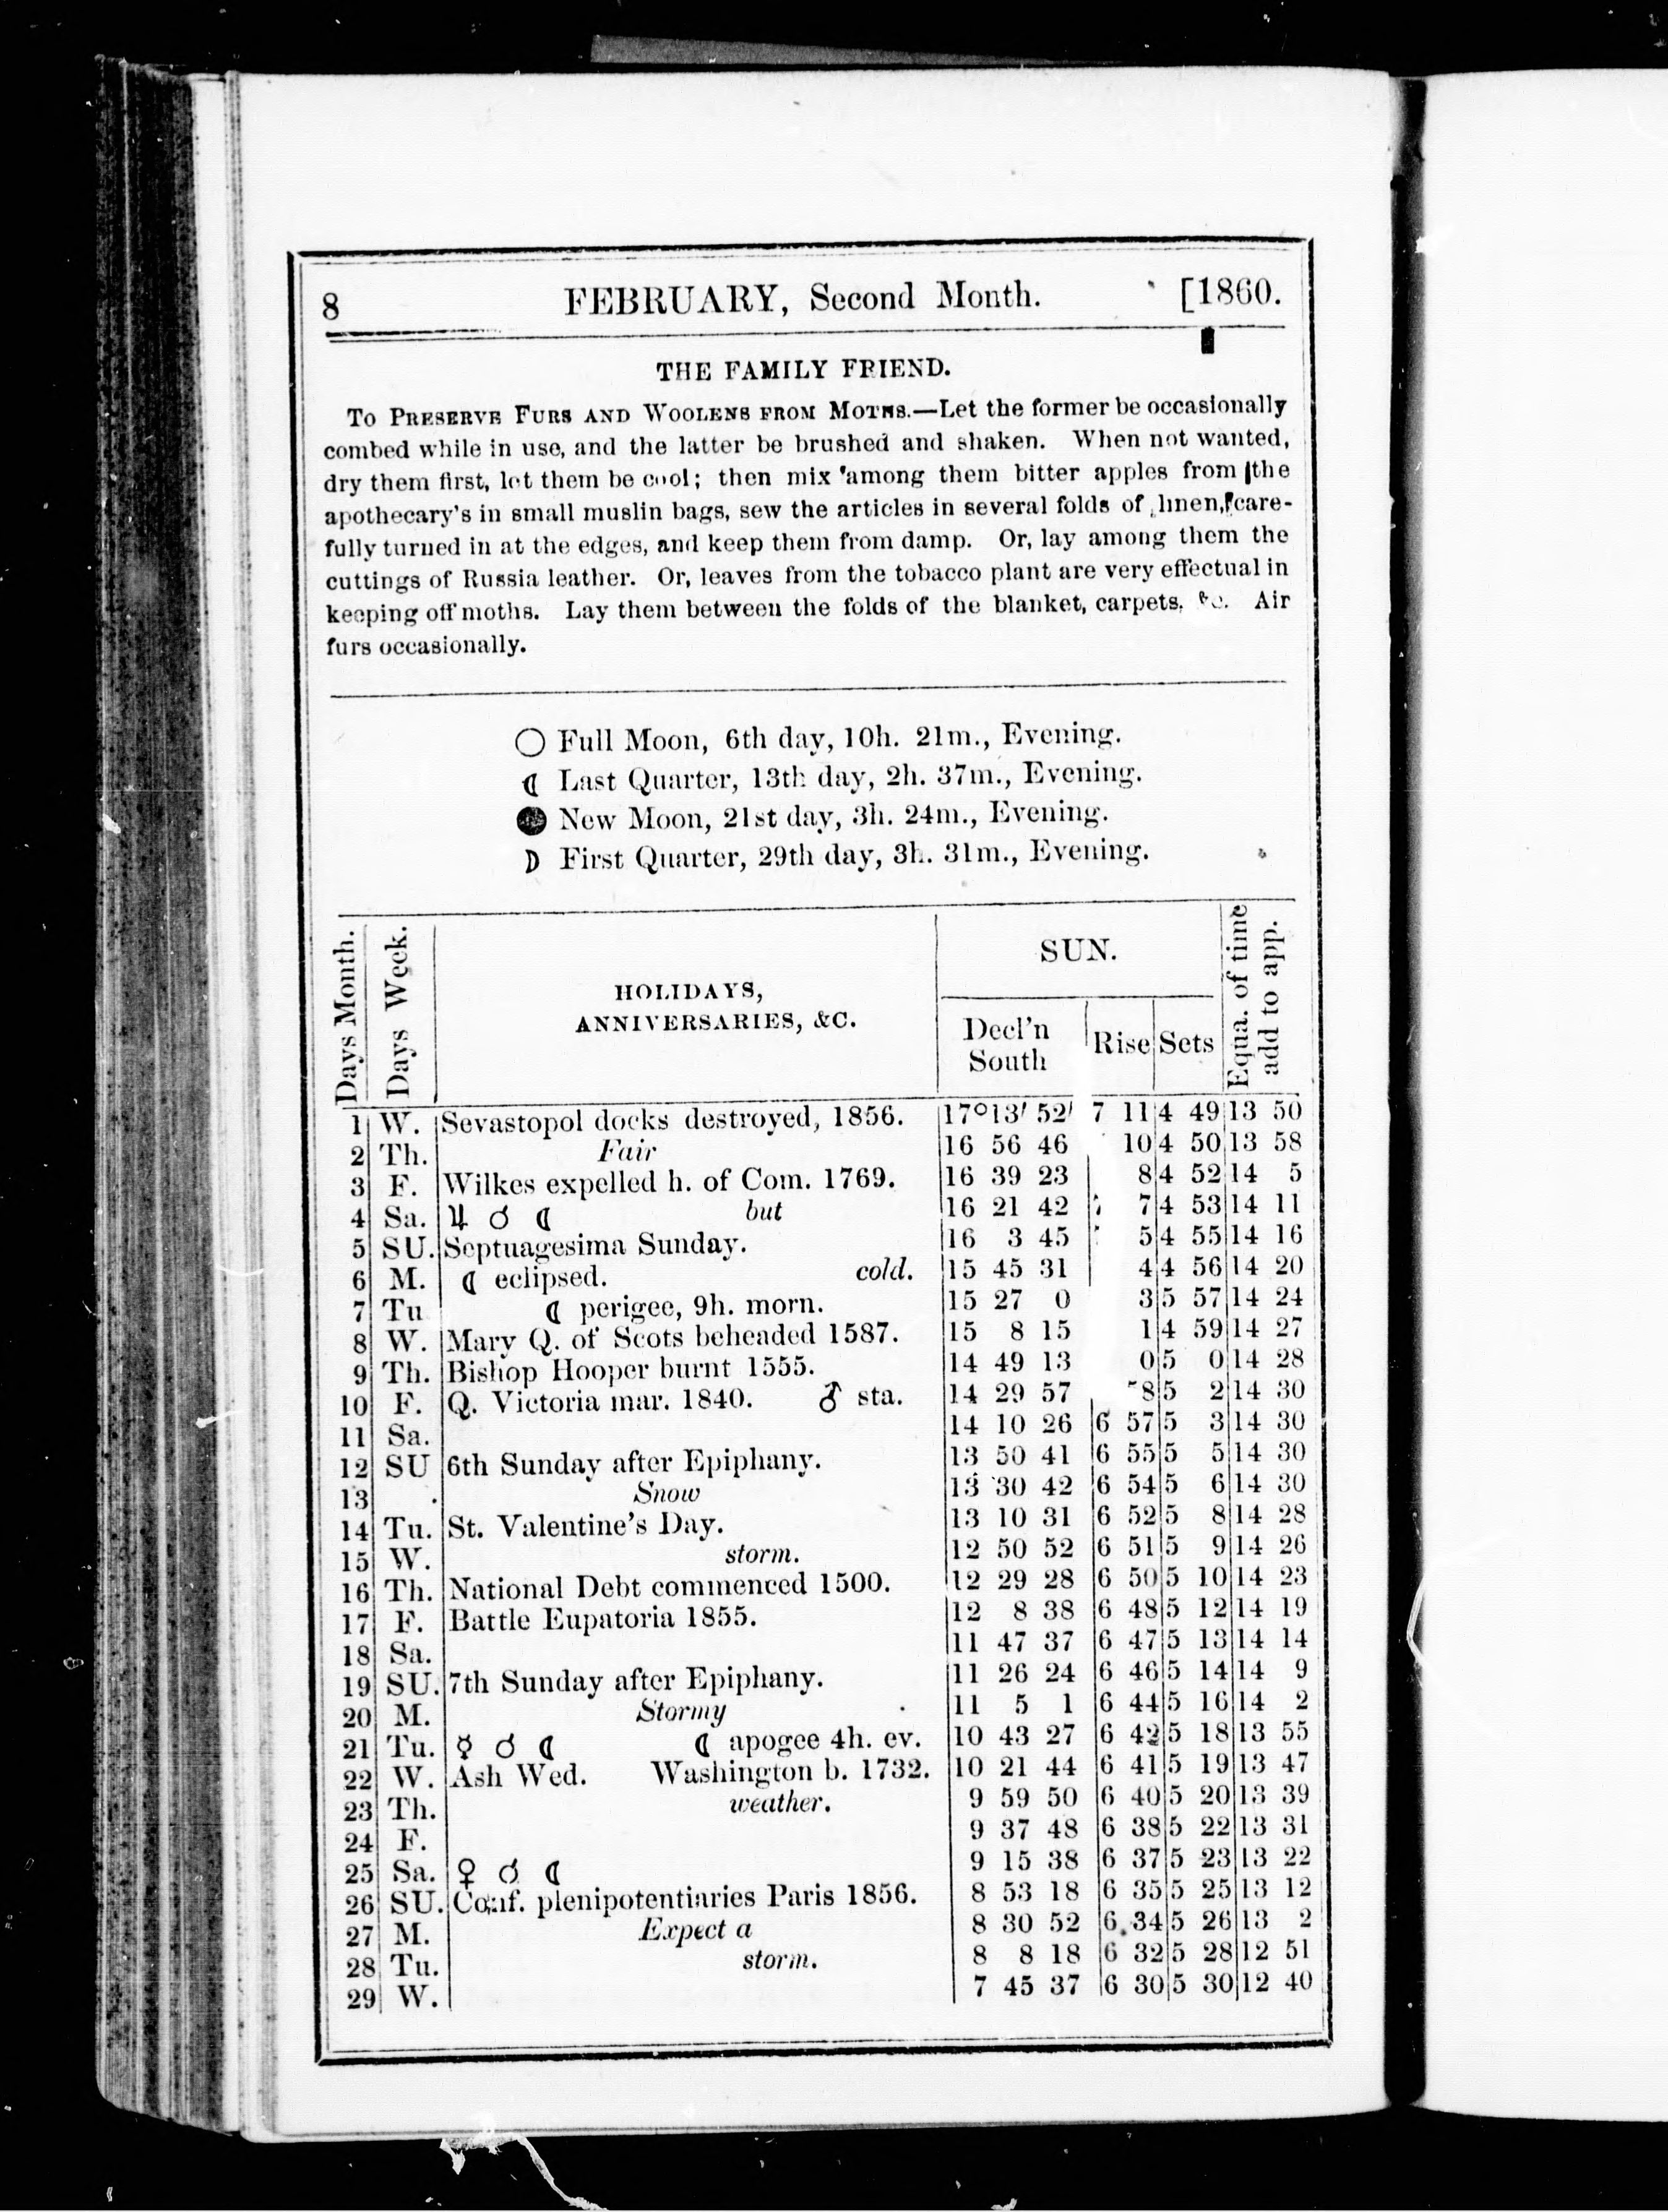 8 FEBRUARY, Second Month. [1860.
THE FAMILY FRIEND.
TO PRESERVE FURS AND WOOLENS FROM MOTHS.—Let the former be occasionally
combed while in use, and the latter be brushed and shaken. When not wanted,
dry them first, let them be cool; then mix among them bitter apples from the
apothecary's in small muslin bags, sew the articles in several folds of linen, care-
fully turned in at the edges, and keep them from damp. Or, lay among them the
cuttings of Russia leather. Or, leaves from the tobacco plant are very effectual in
keeping off moths. Lay them between the folds of the blanket, carpets, &c. Air
furs occasionally.
○ Full Moon, 6th day, 10h. 21m., Evening.
☾ Last Quarter, 13th day, 2h. 37m., Evening.
● New Moon, 21st day, 3h. 24m., Evening.
☽ First Quarter, 29th day, 3h. 31m., Evening.
Days Month. Days Week. HOLIDAYS, ANNIVERSARIES, &C. SUN. Decl'n South Rise Sets Equa. of time add to app.
1 W. Sevastopol docks destroyed, 1856. 17° 13' 52' 7 11 4 49 13 50
2 Th. Fair 16 56 46 10 4 50 13 58
3 F. Wilkes expelled h. of Com. 1769. 16 39 23 8 4 52 14 5
4 Sa. ♃ ☌ ☾ but 16 21 42 7 7 4 53 14 11
5 SU. Septuagesima Sunday. 16 3 45 5 4 55 14 16
6 M. ☾ eclipsed. cold. 15 45 31 4 4 56 14 20
7 Tu ☾ perigee, 9h. morn. 15 27 0 3 5 57 14 24
8 W. Mary Q. of Scots beheaded 1587. 15 8 15 1 4 59 14 27
9 Th. Bishop Hooper burnt 1555. 14 49 13 0 5 0 14 28
10 F. Q. Victoria mar. 1840. ♂ sta. 14 29 57 8 5 2 14 30
11 Sa. 14 10 26 6 57 5 3 14 30
12 SU 6th Sunday after Epiphany. 13 50 41 6 55 5 5 14 30
13 Snow 13 30 42 6 54 5 6 14 30
14 Tu. St. Valentine's Day. 13 10 31 6 52 5 8 14 28
15 W. storm. 12 50 52 6 51 5 9 14 26
16 Th. National Debt commenced 1500. 12 29 28 6 50 5 10 14 23
17 F. Battle Eupatoria 1855. 12 8 38 6 48 5 12 14 19
18 Sa. 11 47 37 6 47 5 13 14 14
19 SU. 7th Sunday after Epiphany. 11 26 24 6 46 5 14 14 9
20 M. Stormy 11 5 1 6 44 5 16 14 2
21 Tu. ☿ ☌ ☾ ☾ apogee 4h. ev. 10 43 27 6 42 5 18 13 55
22 W. Ash Wed. Washington b. 1732. 10 21 44 6 41 5 19 13 47
23 Th. weather. 9 59 50 6 40 5 20 13 39
24 F. 9 37 48 6 38 5 22 13 31
25 Sa. ♀ ☌ ☾ 9 15 38 6 37 5 23 13 22
26 SU. Conf. plenipotentiaries Paris 1856. 8 53 18 6 35 5 25 13 12
27 M. Expect a 8 30 52 6 34 5 26 13 2
28 Tu. storm. 8 8 18 6 32 5 28 12 51
29 W. 7 45 37 6 30 5 30 12 40